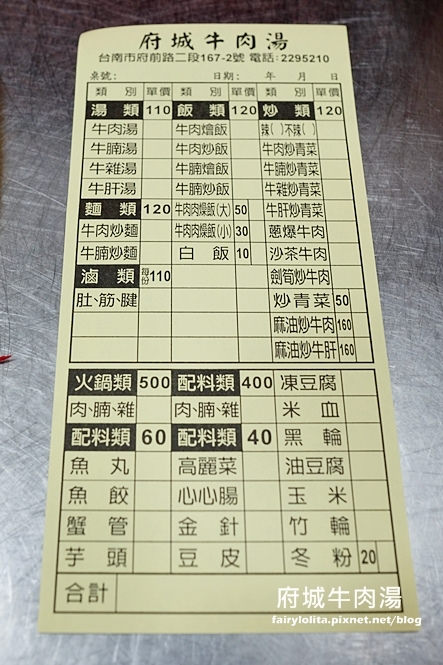 府城牛肉湯
台南市府前路二段167-2號 電話:2295210
桌號: 日期: 年 月 日
類 別 單價 類 別 單價 類 別 單價
湯 類 110 飯 類 120 炒 類 120
牛肉湯 牛肉燴飯 辣( )不辣( )
牛腩湯 牛肉炒飯 牛肉炒青菜
牛雜湯 牛腩燴飯 牛腩炒青菜
牛肝湯 牛腩炒飯 牛雜炒青菜
麵 類 120 牛肉肉燥飯(大) 50 牛肝炒青菜
牛肉炒麵 牛肉肉燥飯(小) 30 蔥爆牛肉
牛腩炒麵 白 飯 10 沙茶牛肉
滷 類 每份 110 劍筍炒牛肉
肚、筋、腱 炒青菜 50
麻油炒牛肉 160
麻油炒牛肝 160
火鍋類 500 配料類 400 凍豆腐
肉、腩、雜 肉、腩、雜 米 血
配料類 60 配料類 40 黑 輪
魚 丸 高麗菜 油豆腐
魚 餃 心心腸 玉 米
蟹 管 金 針 竹 輪
芋 頭 豆 皮 冬 粉 20
合計
府城牛肉湯
fairylolita.pixnet.net/blog